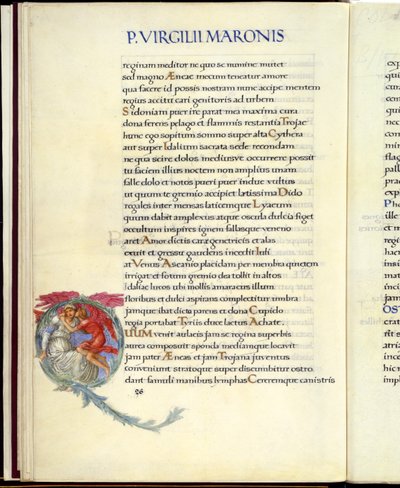 P. VIRGILII MARONIS
reginam meditor ne quo se numine mutet
sed magno Æneae mecum teneatur amore
qua facere id possis nostram nunc accipe mentem
regius accitu cari genitoris ad urbem
Sidoniam puer ire parat mea maxima cura
dona ferens pelago et flammis restantia Trojae
hunc ego sopitum somno super alta Cythera
aut super Idalium sacrata sede recondam
ne qua scire dolos mediusve occurrere possit
tu faciem illius noctem non amplius unam
falle dolo et notos pueri puer indue vultus
ut quum te gremio accipiet laetissima Dido
regales inter mensas laticemque Lyaeum
quum dabit amplexus atque oscula dulcia figet
occultum inspires ignem fallasque veneno
aret Amor dictis carae genetricis et alas
exuit et gressu gaudens incedit Iuli
at Venus Ascanio placidam per membra quietem
irrigat et fotum gremio dea tollit in altos
Idaliae lucos ubi mollis amaracus illum
floribus et dulci aspirans complectitur umbra
jamque ibat dicto parens et dona Cupido
regia portabat Tyriis duce laetus Achate.
QUUM venit aulaeis jam se regina superbis
aurea composuit sponda mediamque locavit
jam pater Æneas et jam Trojana juventus
conveniunt stratoque super discumbitur ostro
dant famuli manibus lymphas Cereremque canistris
26